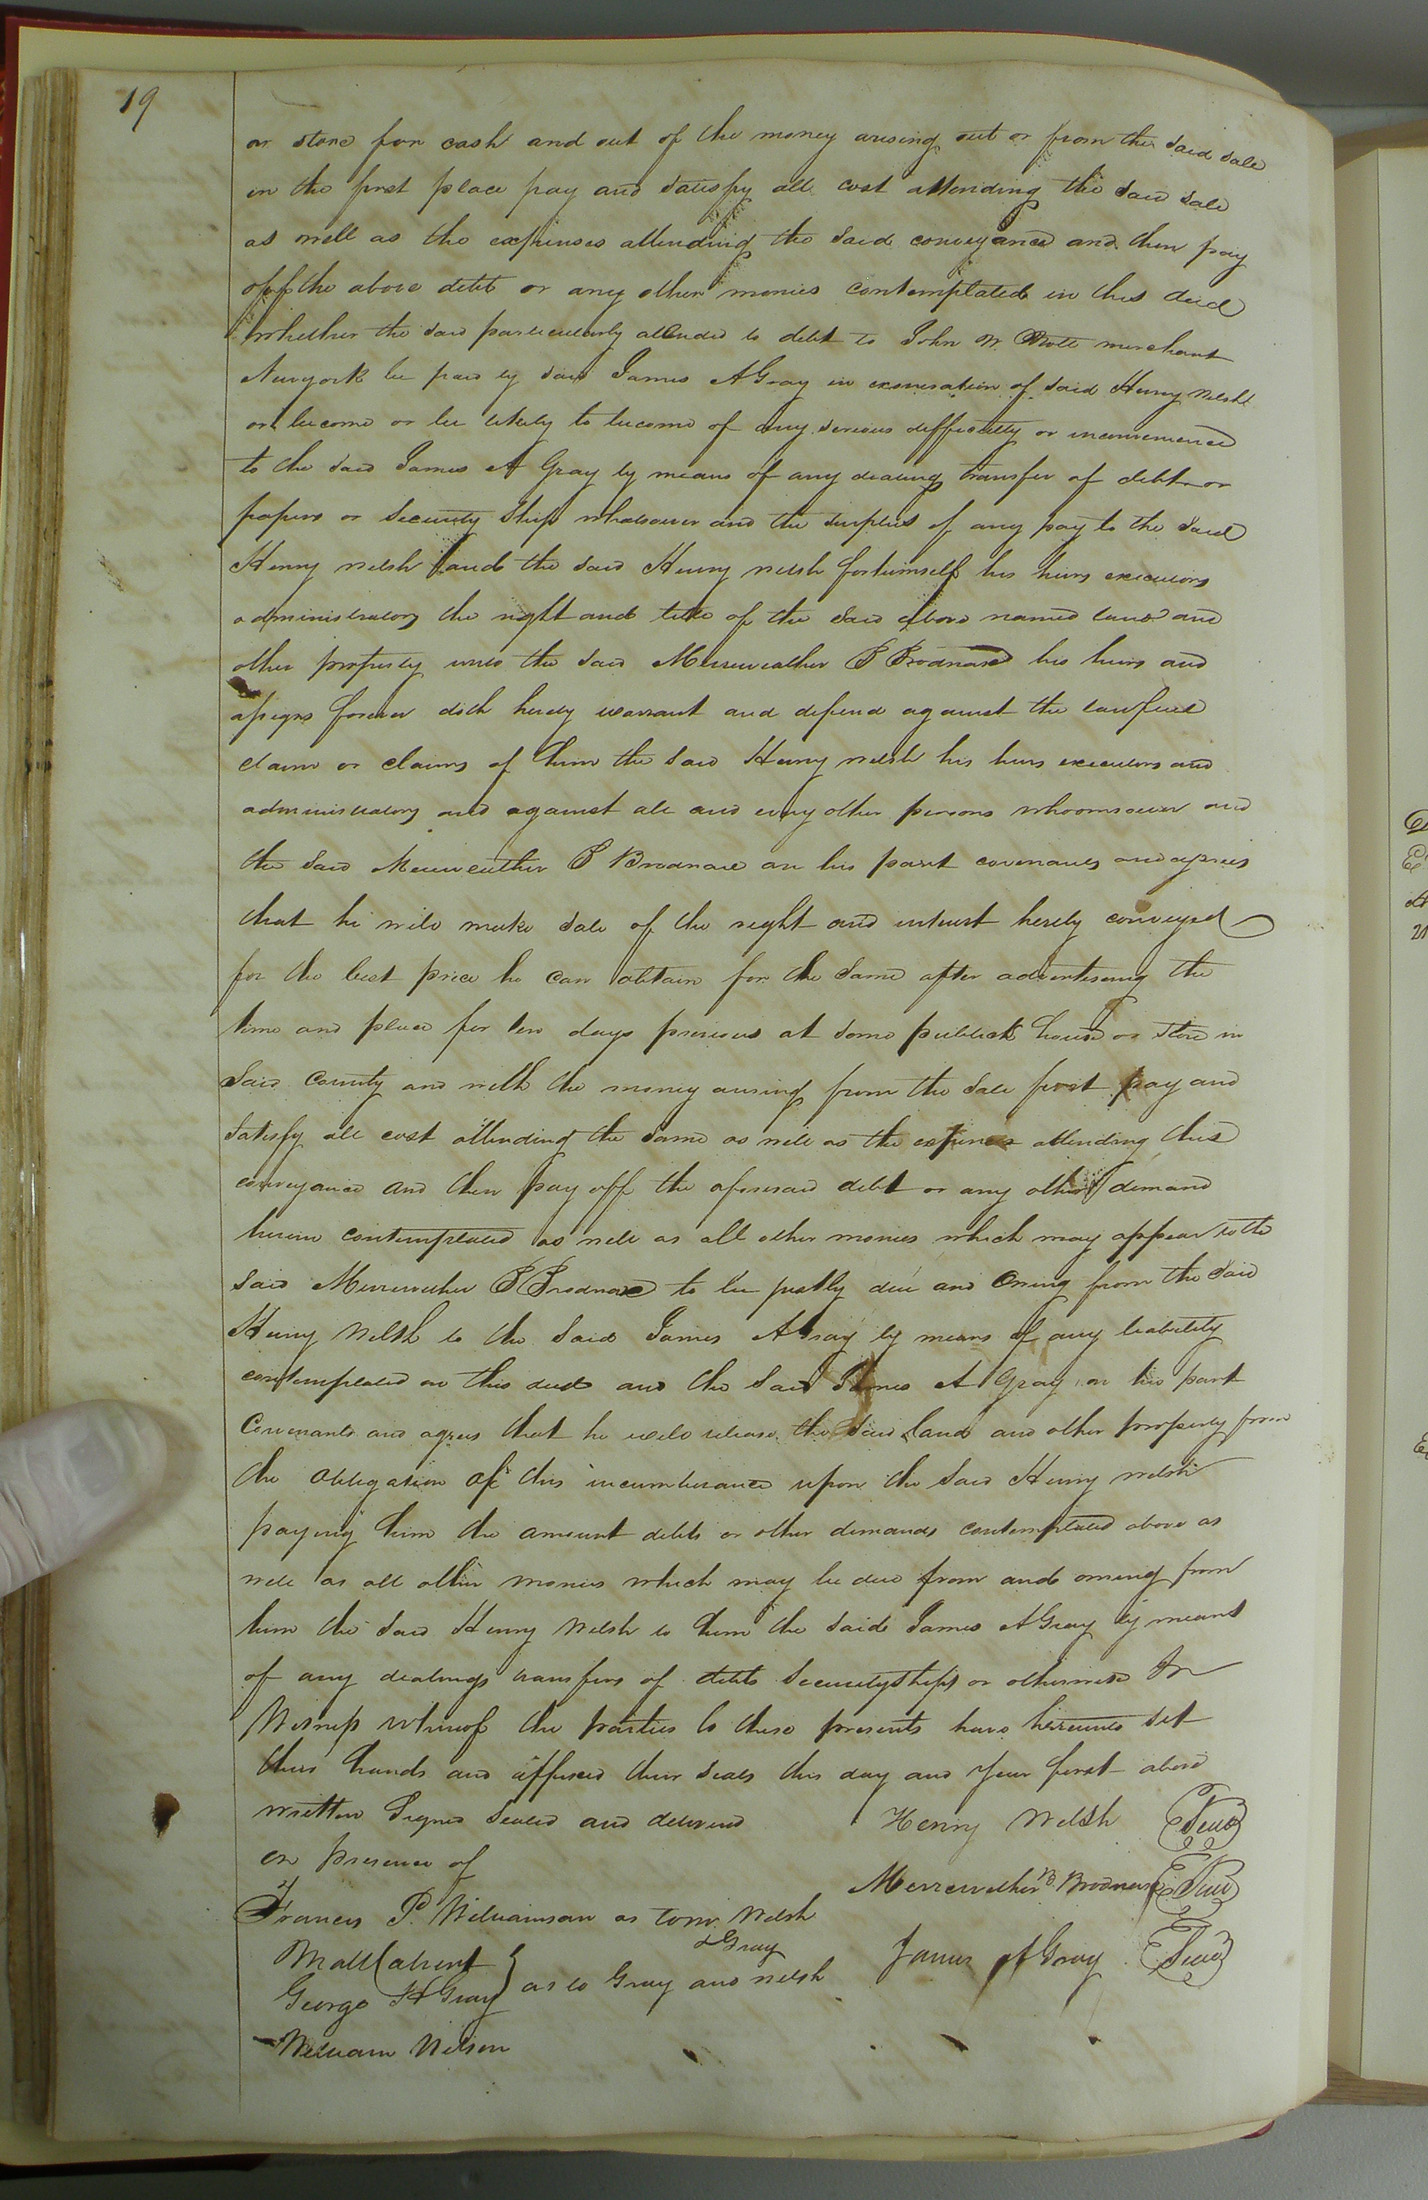 19
or store for cash and out of the money arising out or from the said sale
in the first place pay and satisfy all cost attending the said sale
as well as the expenses attending the said conveyance and then pay
off the above debt or any other monies contemplated in this deed
whether the said particularly alluded to debt to John W. merchant
Newyork be paid by said James A Gray in exoneration of said Henry Welsh
or become or be likely to become of any serious difficulty or inconvenience
to the said James A Gray by means of any dealing transfer of debt or
papers or Security Ship whatsoever and the surplus if any pay to the said
Henry Welsh and the said Henry Welsh for himself his heirs executors
administrators the right and title of the said above named land and
other property unto the said Merreweather B Brodnax his heirs and
assigns forever doth hereby warrant and defend against the lawfull
claim or claims of him the said Henry Welsh his heirs executors and
administrators and against all and every other persons whoomsoever and
the said Merreweather B Brodnax on his part covenants and agrees
that he will make sale of the right and interest hereby conveyed
for the best price he can obtain for the same after advertiseing the
time and place for ten days previous at some publick house or store in
Said County and with the money arising from the sale first pay and
satisfy all cost attending the same as well as the expenses attending this
conveyance and then pay off the aforesaid debt or any other demand
herein contemplated as well as all other monies which may appear to the
said Merreweather B Brodnax to be justly due and Owing from the said
Henry Welsh to the said James A Gray by means of any liability
contemplated in this deed and the said James A Gray on his part
Covenants and agrees that he will release the said land and other property from
the obligation of this incumberance upon the said Henry Welsh
paying him the amount debts or other demands contemplated above as
well as all other monies which may be due from and owing from
him the said Henry Welsh to him the said James A Gray by means
of any dealings transfers of debts Securityships or otherwise In
Witness whereof the parties to these presents have hereunto set
their hands and affixed their seals this day and Year first above
written Signed Sealed and delivered Henry Welsh Seal
in presence of
Merreweather B. Brodnax Seal
Francis P. Williamson as to Welsh
& Gray
Matt Calvent James A Gray Seal
George H Gray } as to Gray and Welsh
William Wilson